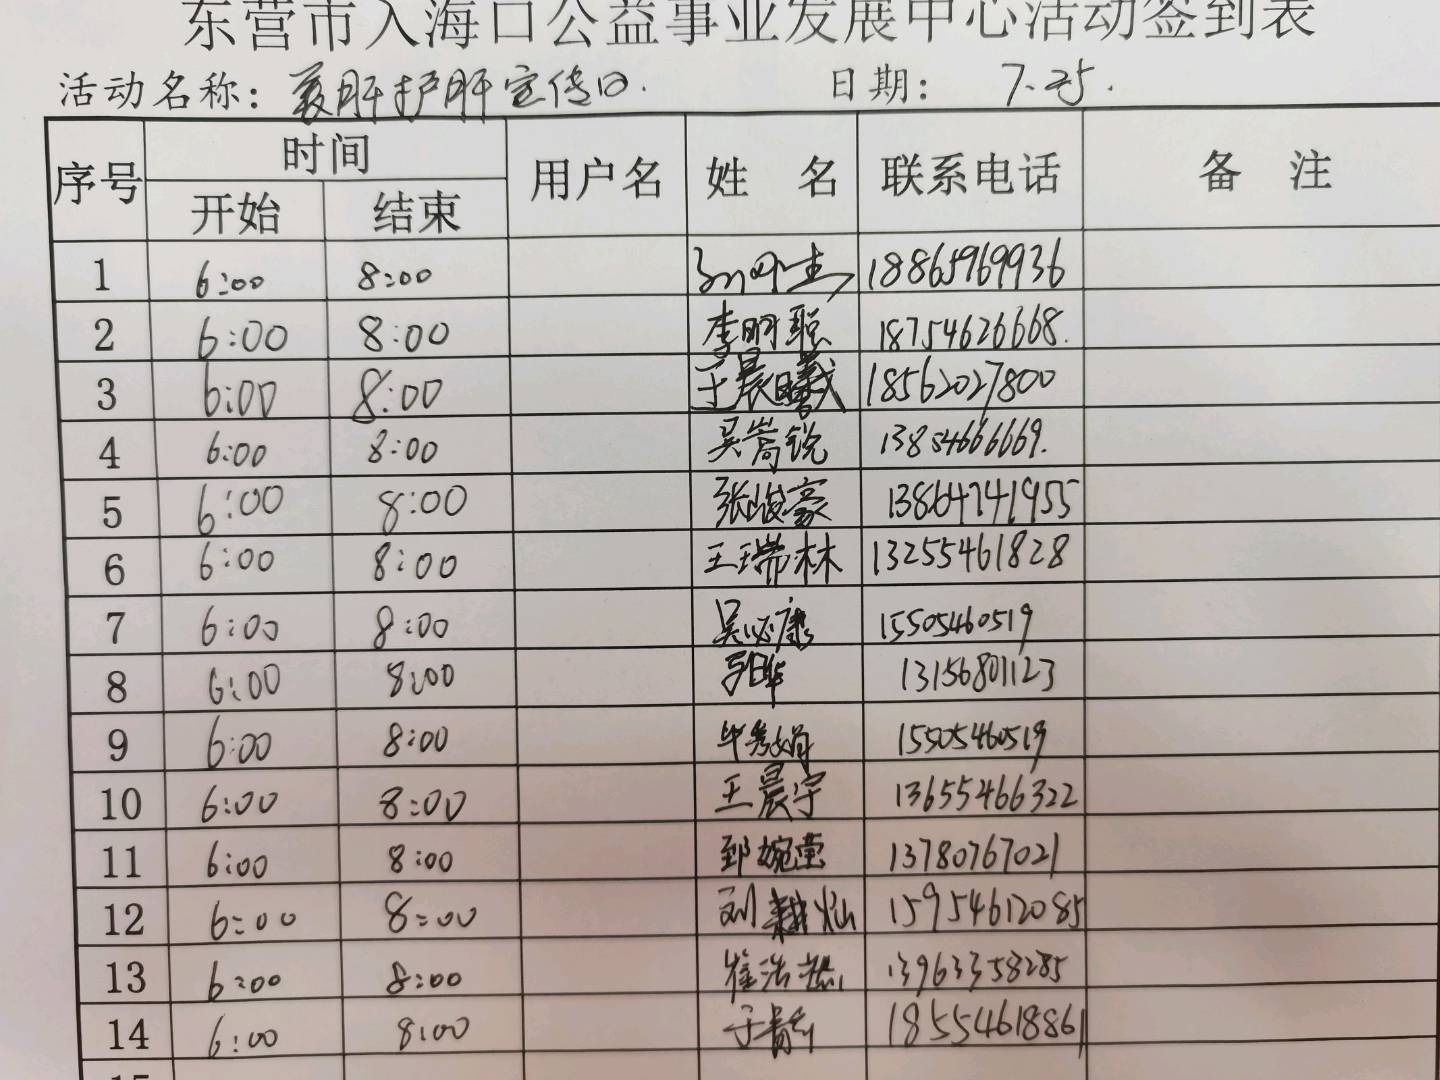 东营市入海口公益事业发展中心活动签到表
活动名称：爱肝护肝宣传日. 日期：7.25.
序号 时间 用户名 姓 名 联系电话 备 注
开始 结束
1 6:00 8:00 18865969936
2 6:00 8:00 李明聪 18754626668.
3 6:00 8:00 于晨曦 18562027800
4 6:00 8:00 吴嵩锐 13854666669.
5 6:00 8:00 张峻豪 13864741955
6 6:00 8:00 王瑞林 13255461828
7 6:00 8:00 吴必康 15505460519
8 6:00 8:00 13156801123
9 6:00 8:00 15505460519
10 6:00 8:00 王晨宇 13655466322
11 6:00 8:00 13780767021
12 6:00 8:00 刘耕灿 15954612085
13 6:00 8:00 13963358285
14 6:00 8:00 18554618861